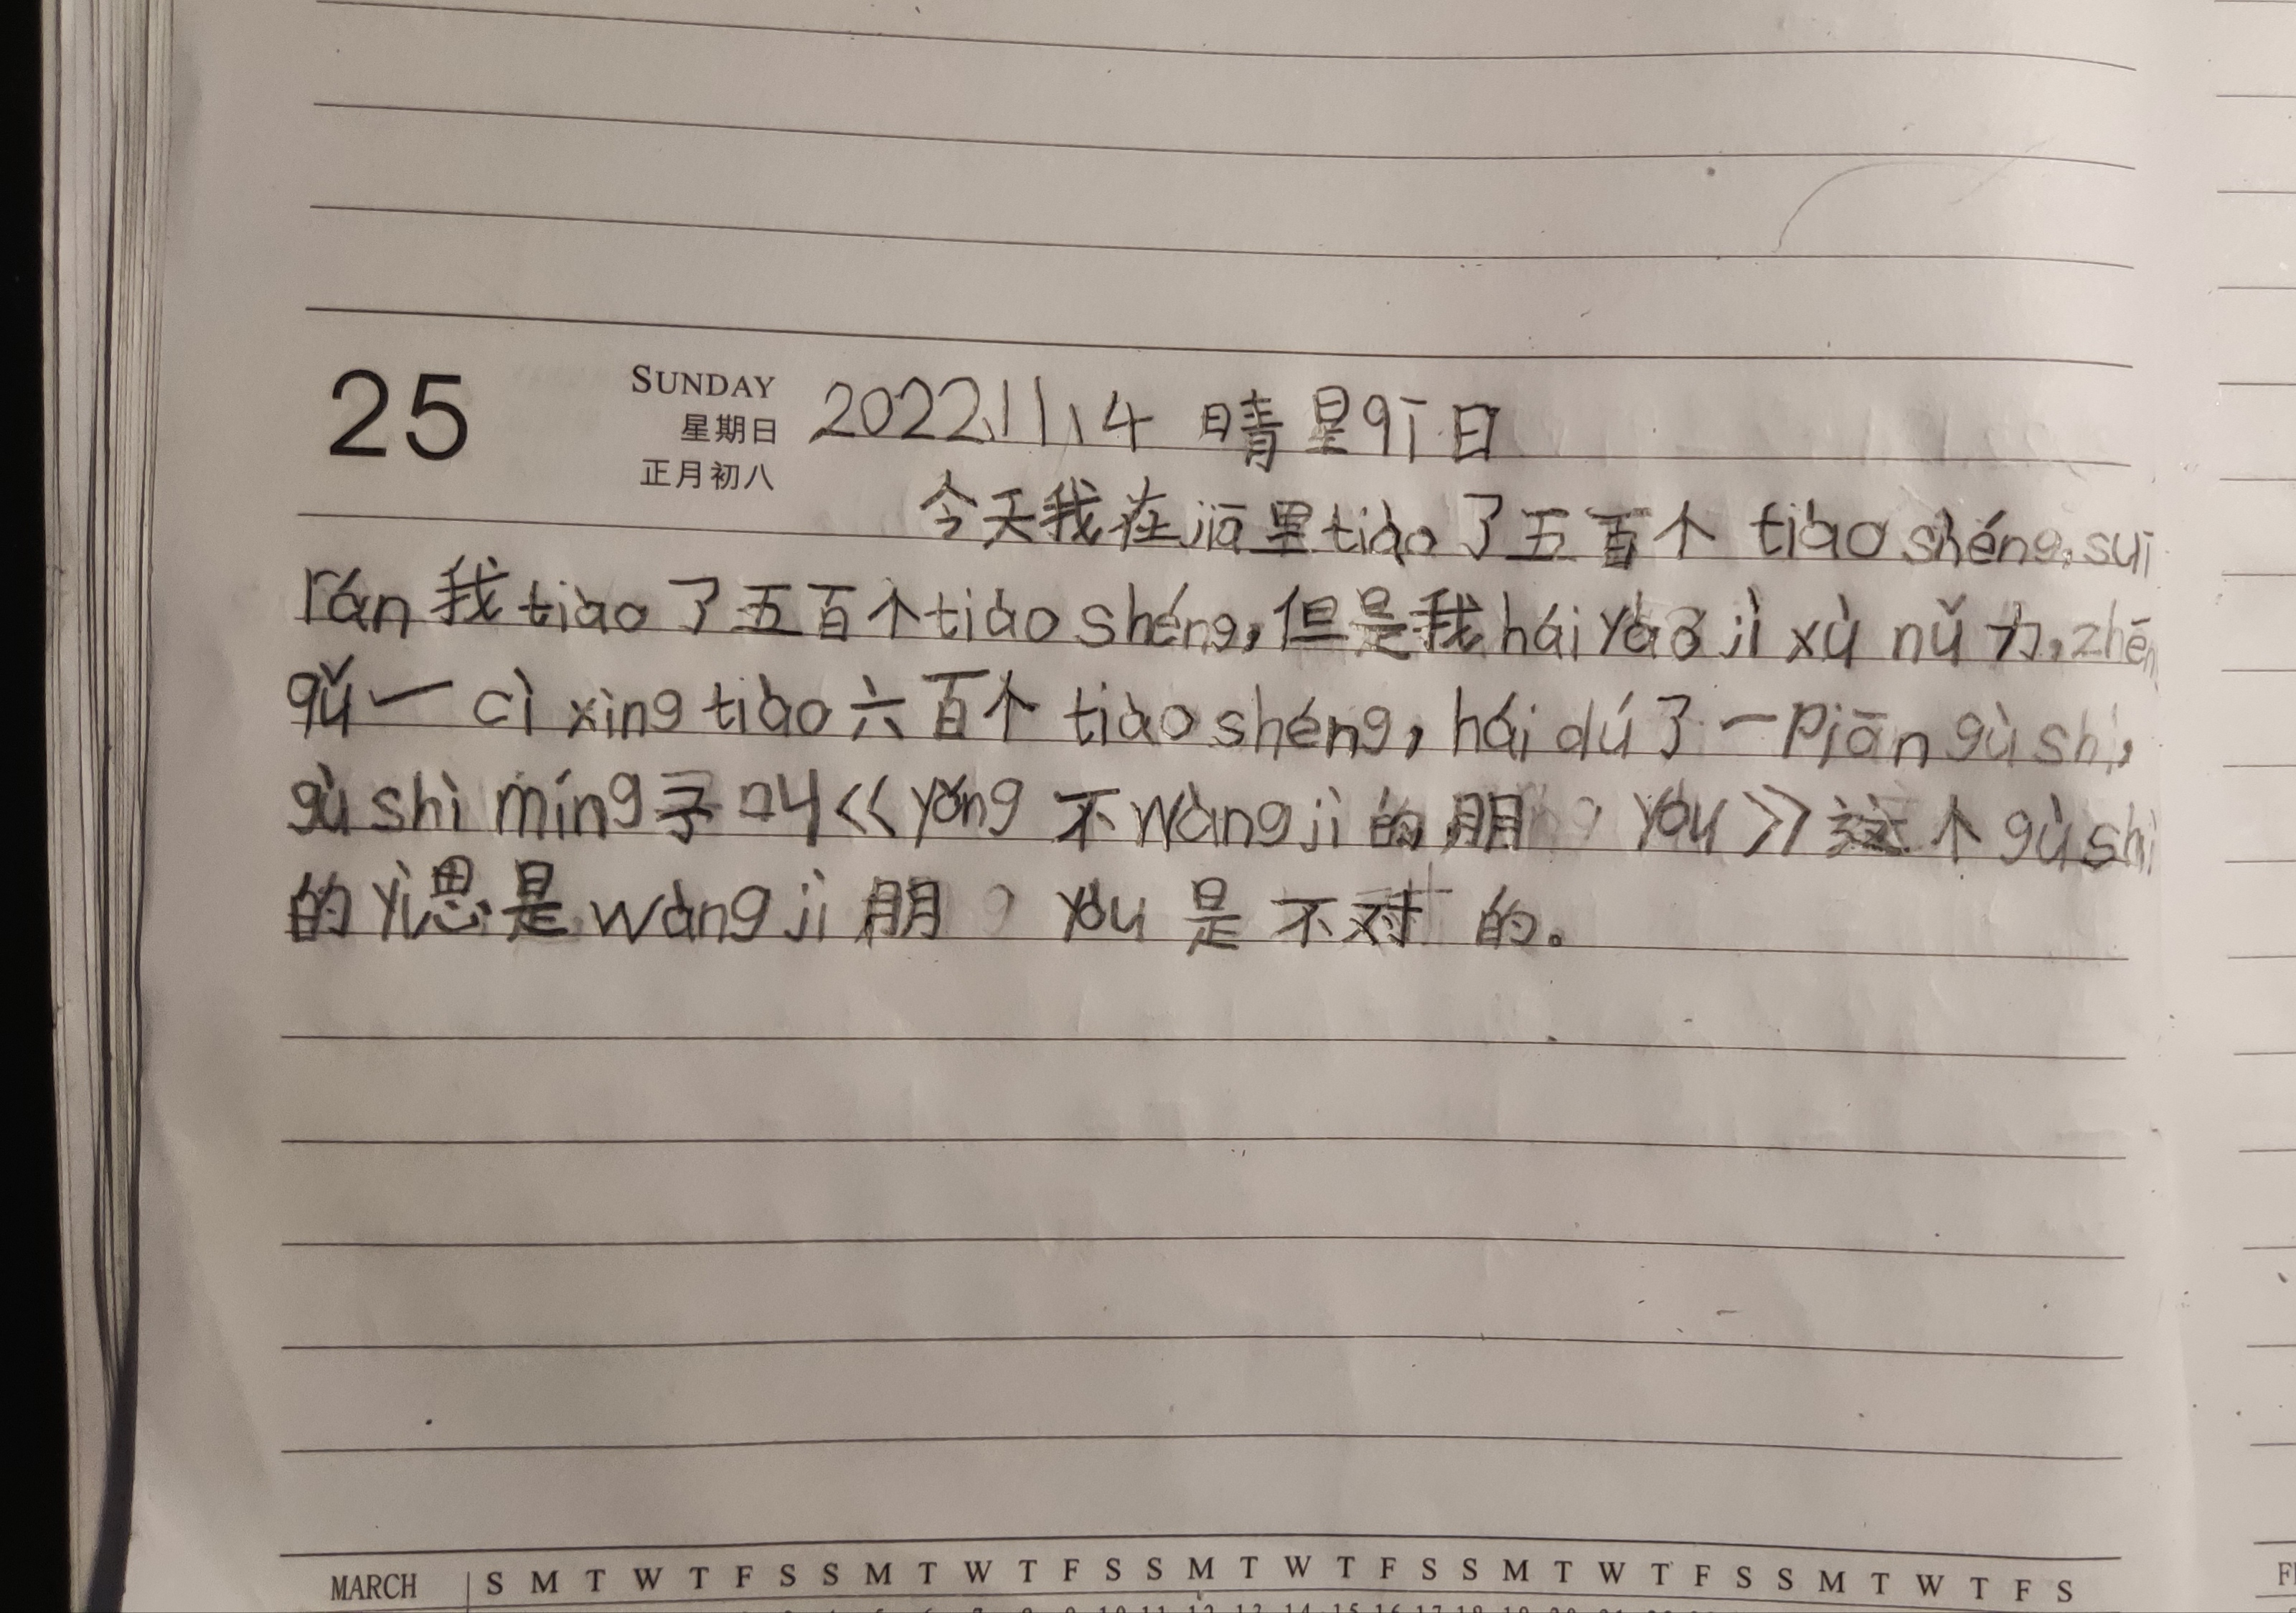 25 SUNDAY 2022.11.4 晴 星qī日
星期日
正月初八
今天我在jiā里tiào了五百个 tiào shéng,suī
rán我tiào了五百个tiào shéng,但是我hái yào jì xù nǔ力,zhēn
gǔ一 cì xìng tiào六百个 tiào shéng,hái dú了一Piān gù shì,
gù shì míng子叫《yǒng 不Wàng jì 的朋 yǒu》这个gù shì
的yì思是wàng jì 朋 yǒu 是 不对 的。
MARCH S M T W T F S S M T W T F S S M T W T F S S M T W T F S S M T W T F S